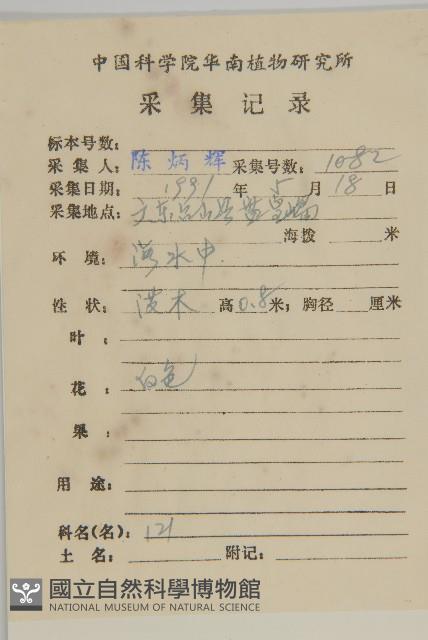 中国科学院华南植物研究所
采集记录
标本号数:
采集人: 陈炳辉 采集号数: 1082
采集日期: 1991 年 5 月 18 日
采集地点: 广东
海拨 米
环境: 水中.
性状: 灌木 高0.8米; 胸径 厘米
叶:
花: 白色
果:
用途:
科名(名): 121
土名: 附记:
國立自然科學博物館
NATIONAL MUSEUM OF NATURAL SCIENCE